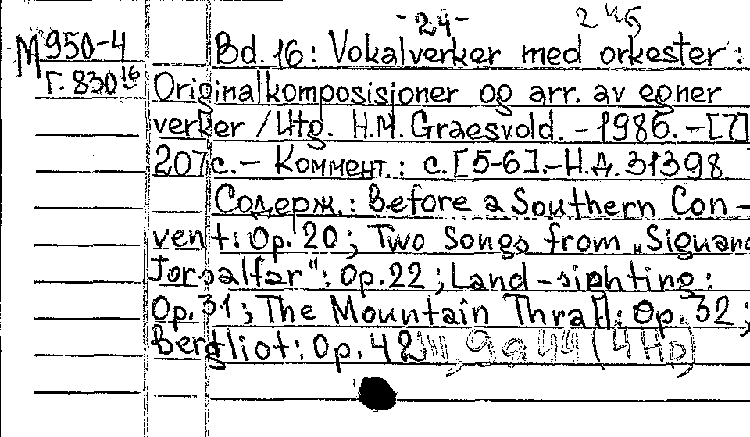 - 24 -
М 950-4
Г. 830 16
Bd. 16: Vokalverker med orkester:
Originalkomposisjoner og arr. av egner
verker / Utg. H.M. Graesvold. - 1986. - [7]
207 с. - Коммент.: с. [5-6]. - Н.Д. 31398
Содерж.: Before a Southern Con-
vent: Op. 20; Two Songs from „Siguand
Jorsalfar": Op. 22; Land-sighting:
Op. 31; The Mountain Thrall: Op. 32;
Bergliot: Op. 42